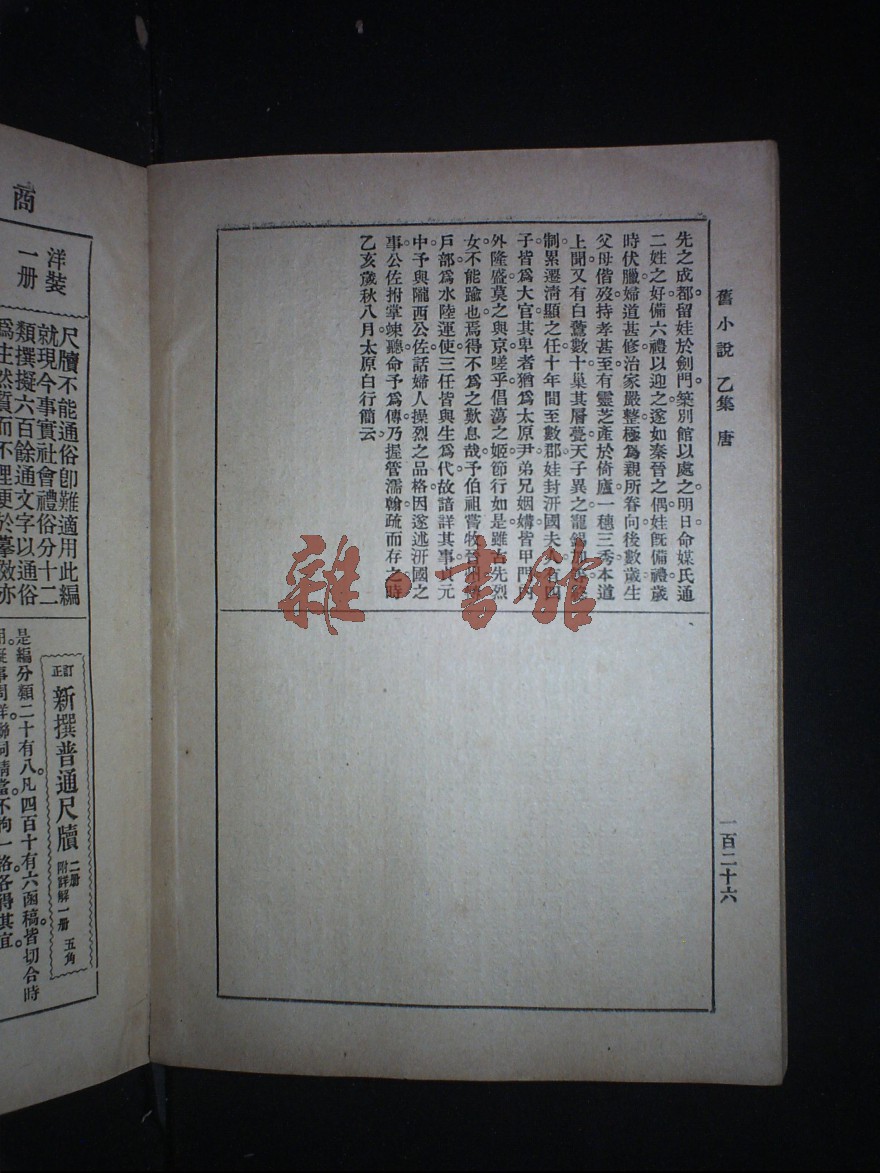 舊小說 乙集 唐
一百二十六
先之成都留娃於劍門築別館以處之明日命媒氏通
二姓之好備六禮以迎之遂如秦晉之偶娃旣備禮歲
時伏臘婦道甚修治家嚴整極爲親所眷向後數歲生
父母偕歿持孝甚至有靈芝產於倚廬一穗三秀本道
上聞又有白鷰數十巢其層甍天子異之寵錫加等終
制累遷淸顯之任十年間至數郡娃封汧國夫人有四
子皆爲大官其卑者猶爲太原尹弟兄姻媾皆甲門內
外隆盛莫之與京嗟乎倡蕩之姬節行如是雖古先烈
女不能踰也焉得不爲之歎息哉予伯祖嘗牧晉州轉
戶部爲水陸運使三任皆與生爲代故諳詳其事貞元
中予與隴西公佐話婦人操烈之品格因遂述汧國之
事公佐拊掌竦聽命予爲傳乃握管濡翰疏而存之時
乙亥歲秋八月太原白行簡云
雜·書館
商
洋裝
一册
尺牘不能通俗卽難適用此編
就現今事實社會禮俗分十二
類撰擬六百餘通文字以通俗
爲主然質而不俚便於摹效亦
訂正
新撰普通尺牘
二册
附詳解一册
五角
是編分類二十有八凡四百十有六函稿皆切合時
用疑事周詳聯詞精當不拘一格各得其宜